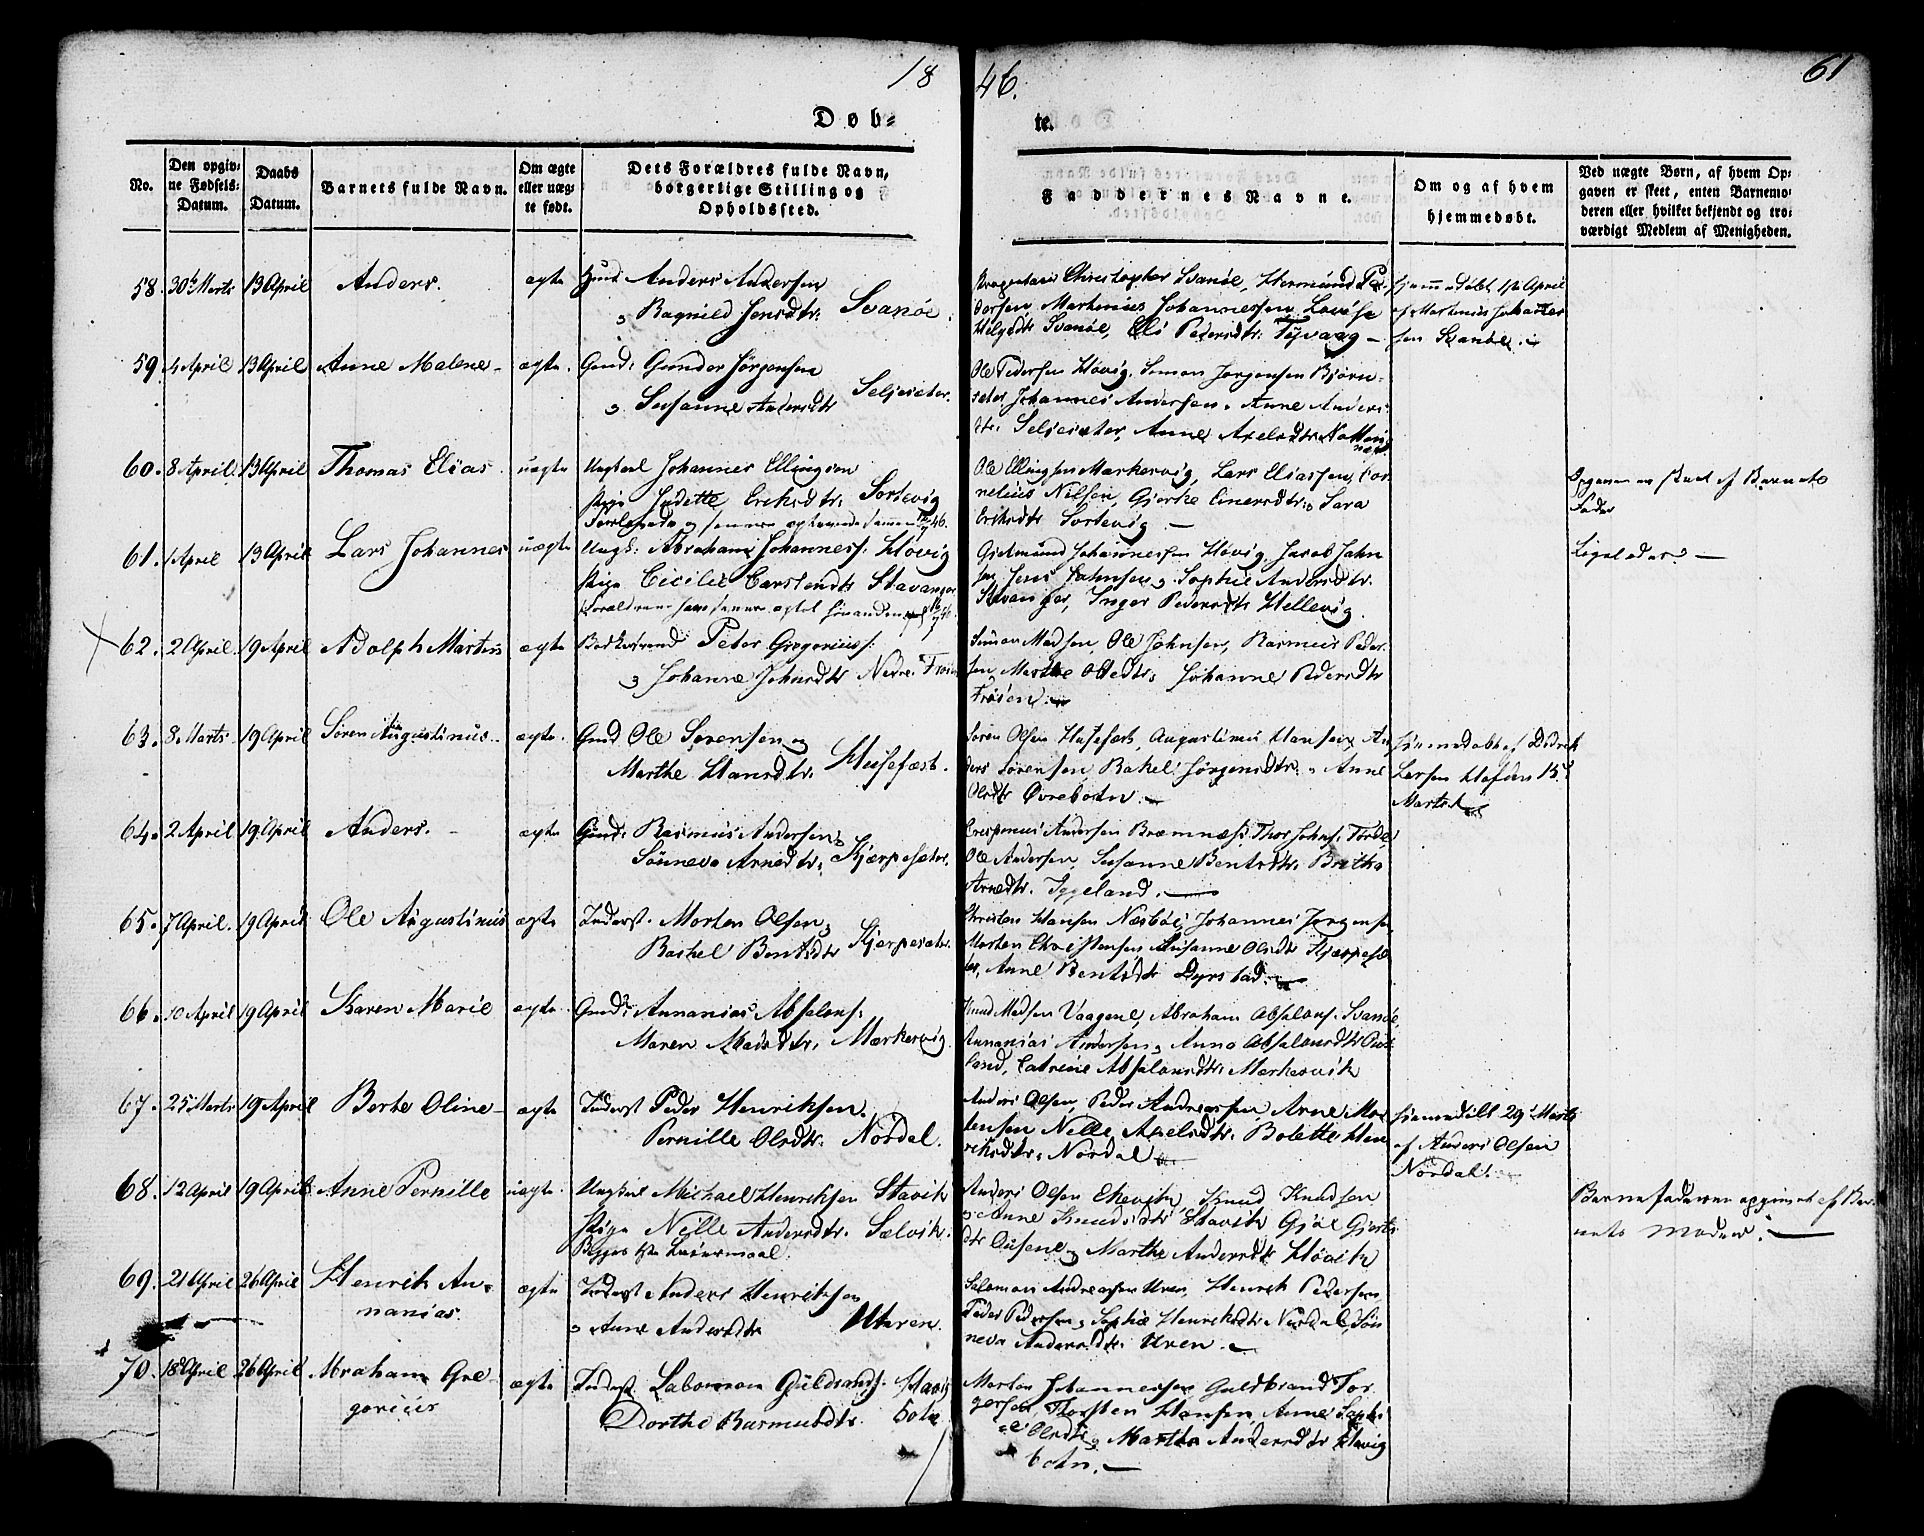 18
46.
61
Døb-
te.
No.
Den opgiv-
ne Fødsels-
Datum.
Daabs
Datum.
Barnets fulde Navn.
Om ægte
eller uæg-
te født.
Dets Forældres fulde Navn,
borgerlige Stilling og
Opholdssted.
Faddernes Navne.
Om og af hvem
hjemmedøbt.
Ved uægte Børn, af hvem Op-
gaven er skeet, enten Barnemo-
deren eller hvilket bekjendt og tro-
værdigt Medlem af Menigheden.
58. 30te Marts 13 April Anders. ægte Gmd Anders Andersen
Ragnild Jensdtr. Svanøe
Christopher Svanøe, Hermund Pe-
dersen, Marthinus Johannessen, Lovise
Helgedtr Svanøe, Eli Pedersdtr. Tyvaag
Hjemmedøbt April
af Marthinus Johannes
sen Svanøe.
59 4 April 13 April Anne Malene ægte. Gmd: Gunder Jørgensen
Susanne Andersdtr Seljesæter.
Ole Pedersen Høvig, Simon Jørgensen Bjørn-
sæter Johannes Andersen, Anne Anders-
dtr. Seljesæter, Anne Axelsdtr
60. 8 April. 13 April Thomas Elias uægte Ungkarl Johannes Ellingsen
Pige Jodette Eriksdtr. Sortevig
Ole Ellingsen Markervig, Lars Eliassen, Cor-
nelius Nilsen, Gjerke Einersdtr. Sara
Eriksdtr Sortevig
Opgaven er skeet af Barnets
Fader
61. 1 April 13 April Lars Johannes uægte Ungk: Abraham Johannesf: Høvig
Pige Cicilie Carstendtr Stavanger
Gjermund Johannessen Høvig, Jacob Jahn
sen, Jens Jahnsen, Sophie Andersdtr.
Stavanger, Inger Pedersdtr Hellevig.
Ligeledes.
62. 2 April. 19 April Adolph Martin ægte Peter Gregoriusf:
Johanne Johnsdtr Nedre Frøien
Simon Madsen, Ole Johnsen, Rasmus Peder-
sen, Marthe Oledtr, Johanne Pedersdtr
Frøien.
63. 8 Marts 19 April Søren Augustinus ægte. Gmd Ole Sørensen og
Marthe Hansdtr. Husefæst.
Søren Olsen Husefæst, Augustinus Hansen, An-
ders Sørensen, Rakel Jørgensdtr. Anne
Olsdtr Øvrebotn.
Hjemmedøbt af Didrik
Larsen Hofden 15
Marts
64. 2 April 19 April Anders. ægte Gmd: Rasmus Andersen
Sønneva Arnedtr. Kjerpesæter.
Crespinus Andersen Bremnæs, Thor Johns: Førde,
Ole Andersen, Susanne Bentsdtr. Brithe
Arnedtr. Iggeland.
65. 7 April. 19 April Ole Augustinus ægte Inderst. Morten Olsen
Rachel Bentsdtr Kjerpesæter.
Christen Hansen Næsbøe, Johannes Jørgensen
Morten Christensen Susanne Olsdtr Kjerpesæ-
ter, Anne Bentsdtr Dyrstad.
66. 10 April 19 April Karen Marie ægte. Gmd: Annanias Absalons:
Maren Madsdtr. Markervig.
Knud Madsen Vaagene, Abraham Absalons. Svanøe,
Annanias Andersen, Anna Absalonsdtr
land, Catrine Absalonsdtr Markervik
67. 25 Marts 19 April Berte Oline ægte Inderst Peder Henriksen.
Pernille Olsdtr. Nordal.
Anders Olsen, Peder Andreassen, Arne Mor-
tensen Nelle Axelsdtr. Bolette Hen-
riksdtr. Nordal
Hjemmedøbt 29 Marts
af Anders Olsen
Nordal.
68. 12 April 19 April Anne Pernille uægte. Ungkarl Michael Henriksen Stavik
Pige Nille Andersdtr. Sælvik.
Begges 1ste Leiermaal.
Anders Olsen Ekevik, Knud Knudsen
Anne Knudsdtr Stavik Gjøe Gjerts
dtr Ousene, Marthe Andersdtr Høvik
Barnefaderen opgivet af Bar-
nets Moder.
69. 21 April 26 April Henrik An-
nanias. ægte Inderst Anders Henriksen
Anne Andersdtr Uren.
Salomon Andreassen Uren, Henrik Pedersen,
Peder Pedersen, Sophie Henriksdtr Nordal, Søn-
neva Andersdtr. Uren.
70. 18 April 26 April Abraham Gre-
gorius ægte Inderst Salomon Guldbrands. Stavig
Dorthe Rasmusdtr. botn
Morten Johannessen, Guldbrand Tor-
gersen, Thorsten Hansen, Anne Sophi
e Olsdtr, Marthe Andersdtr Stavig
botn.